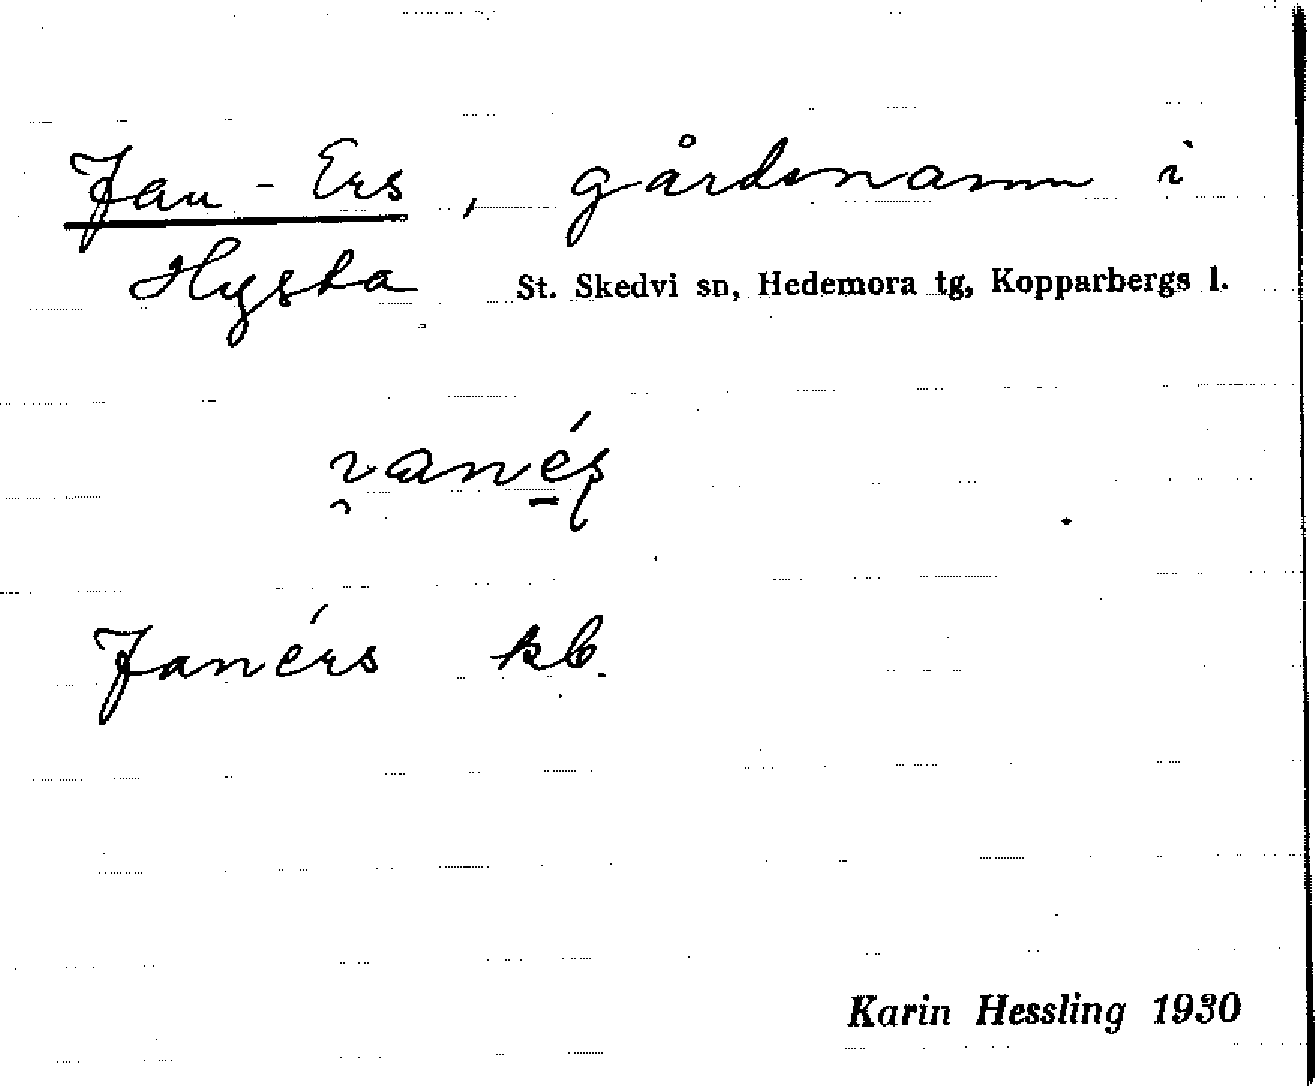 Jan-Ers, gårdsnamn i
Hysta St. Skedvi sn, Hedemora tg, Kopparbergs l.
Janérs kb.
Karin Hessling 1930